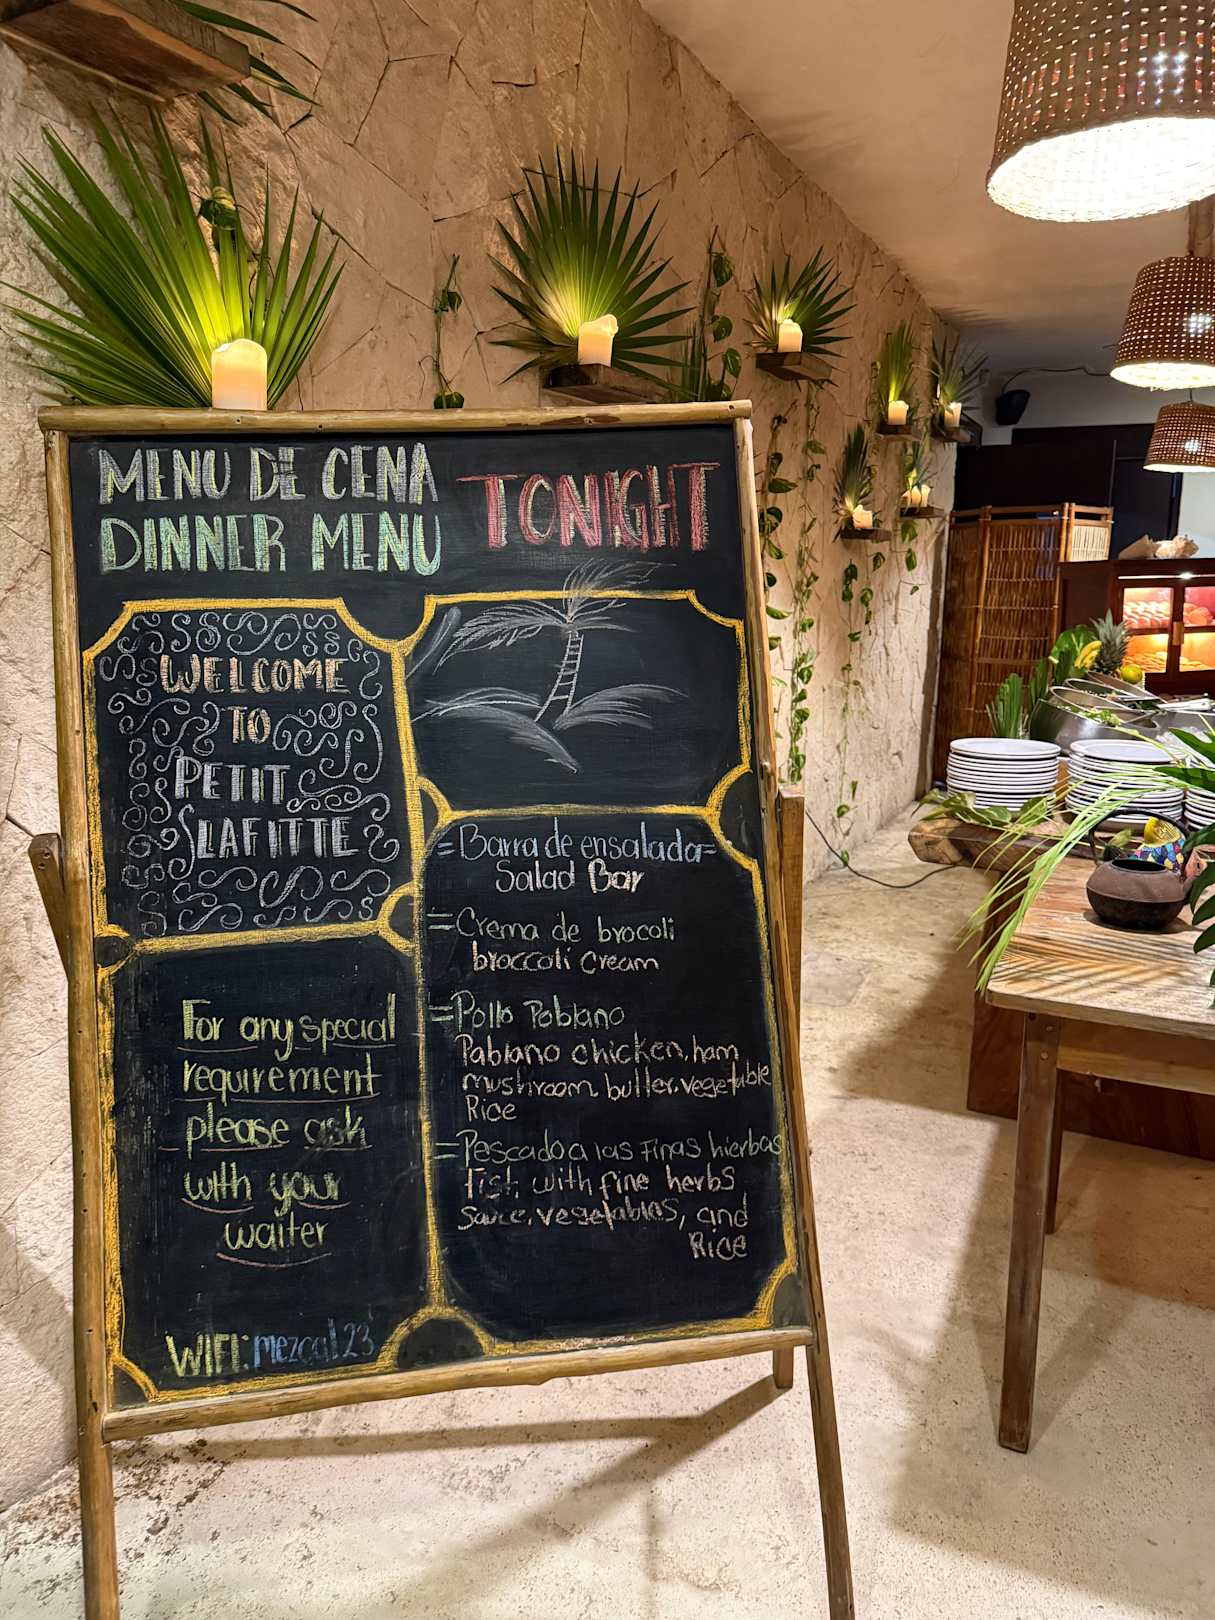 MENU DE CENA
DINNER MENU
TONIGHT
WELCOME
TO
PETIT
LAFITTE
For any special
requirement
please ask
with your
waiter
WIFI: mezcal23
=Barra de ensalada=
Salad Bar
=Crema de brocoli
broccoli cream
=Pollo Poblano
Pablano chicken, ham
mushroom, butter, vegetable
Rice
=Pescado a las Finas hierbas
Fish with fine herbs
sauce, vegetables, and
Rice